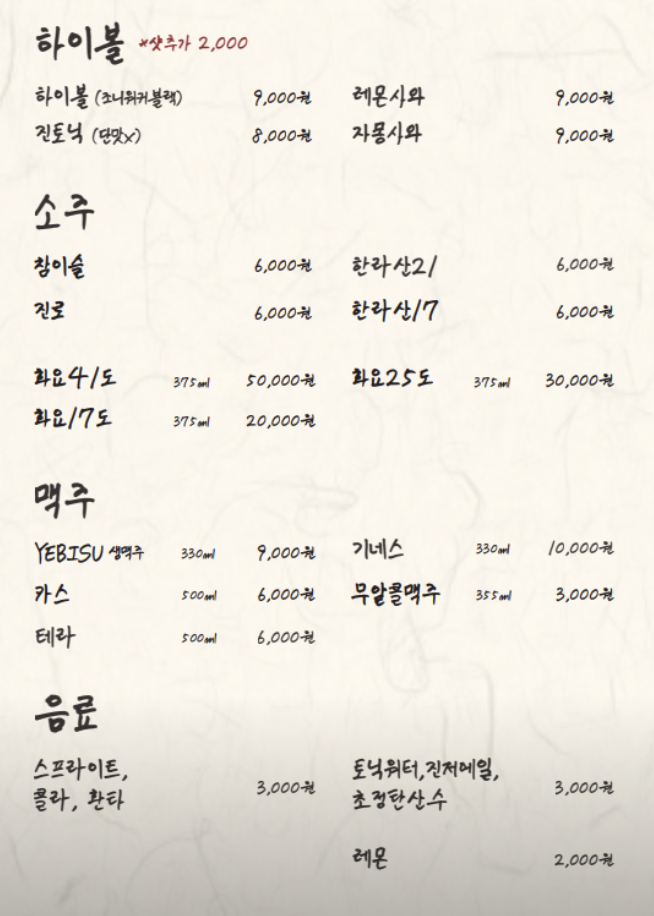 하이볼 *샷추가 2,000
하이볼 (조니워커블랙) 9,000원 레몬사와 9,000원
진토닉 (단맛x) 8,000원 자몽사와 9,000원
소주
참이슬 6,000원 한라산21 6,000원
진로 6,000원 한라산17 6,000원
화요41도 375ml 50,000원 화요25도 375ml 30,000원
화요17도 375ml 20,000원
맥주
YEBISU 생맥주 330ml 9,000원 기네스 330ml 10,000원
카스 500ml 6,000원 무알콜맥주 355ml 3,000원
테라 500ml 6,000원
음료
스프라이트, 토닉워터,진저에일,
콜라, 환타 3,000원 초정탄산수 3,000원
레몬 2,000원